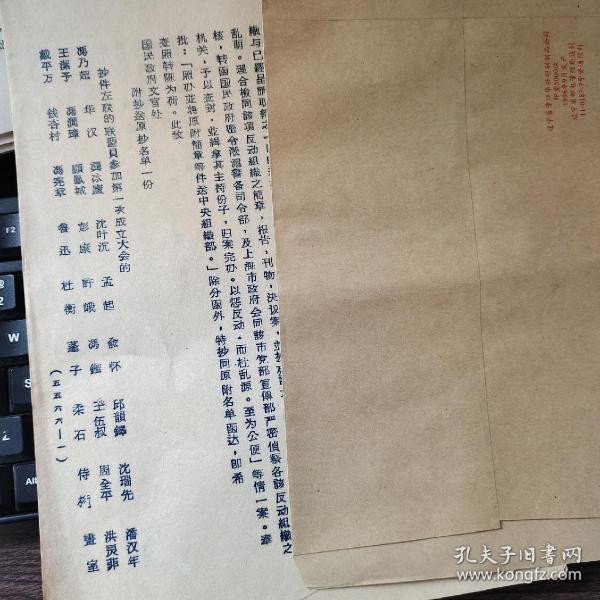 乱萌。理合檢同該項反动組織之簡章，报告，刊物，决议案，並
核，轉函国民政府密令淞滬警备司令部，及上海市政府会同該市党部宣傳部严密偵察各該反动組織之
机关，予以查封，並緝拿其主持份子，归案完办。以惩反动，而杜乱源。至为公便」等情一案。奉
批：「照办並將原附簡章等件送中央組織部。」除分函外，特抄同原附名单函达，即希
查照轉陈为荷。此致
国民政府文官处
附抄送原抄名单一份
抄件左联的联盟員参加第一次成立大会的
馮乃超 华汉 龔冰廬 沈叶沉 孟起 俞怀 邱韻鐸 沈瑞先 潘汉年
王潔予 馮潤璋 顧鳳城 彭康 許峨 馮鏗 王伍叔 周全平 洪灵菲
戴平万 钱杏村 馮宪章 魯迅 杜衡 蓬子 柔石 侍桁 畫室
（五五六六—一）
孔夫子旧书网
www.kongfz.com
F2
Alt